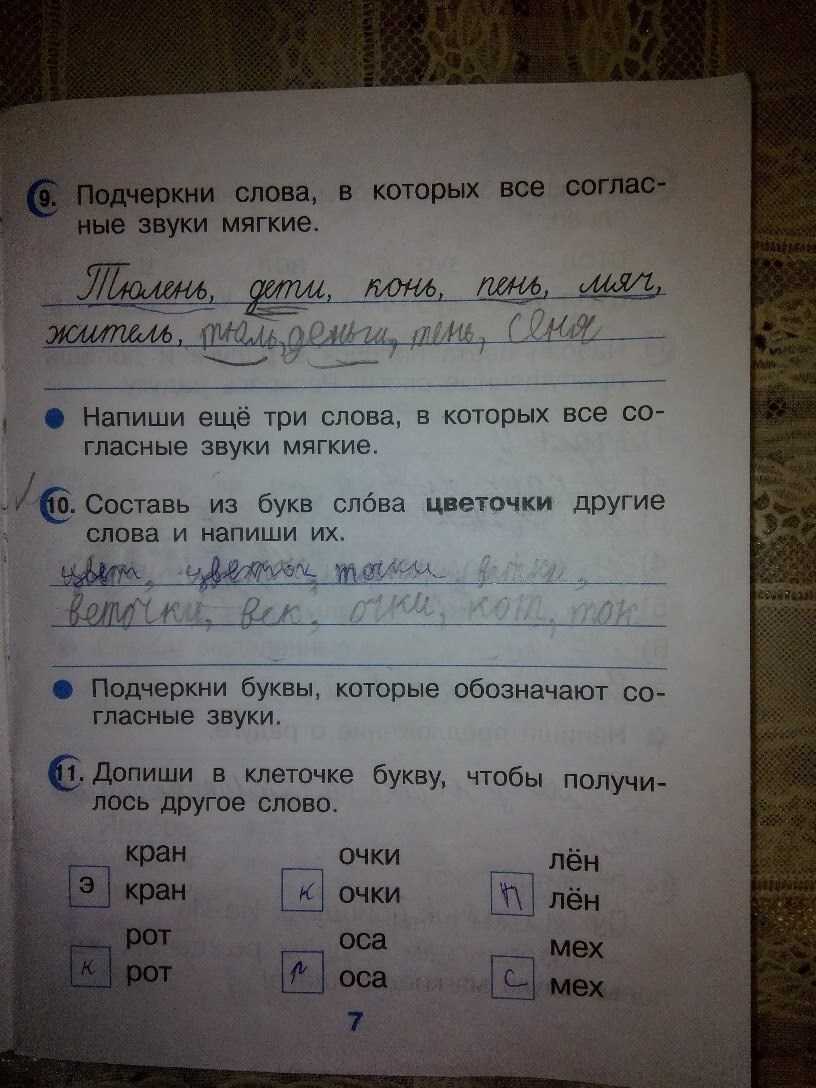 9. Подчеркни слова, в которых все соглас-
ные звуки мягкие.
Тюлень, дети, конь, пень, мяч,
житель, тюль, деньги, тень, Сеня
Напиши ещё три слова, в которых все со-
гласные звуки мягкие.
10. Составь из букв сло́ва цветочки другие
слова и напиши их.
цвет, цветок, точки, ветки,
веточки, век, очки, кот, ток
Подчеркни буквы, которые обозначают со-
гласные звуки.
11. Допиши в клеточке букву, чтобы получи-
лось другое слово.
кран очки лён
э кран к очки п лён
рот оса мех
к рот р оса с мех
7